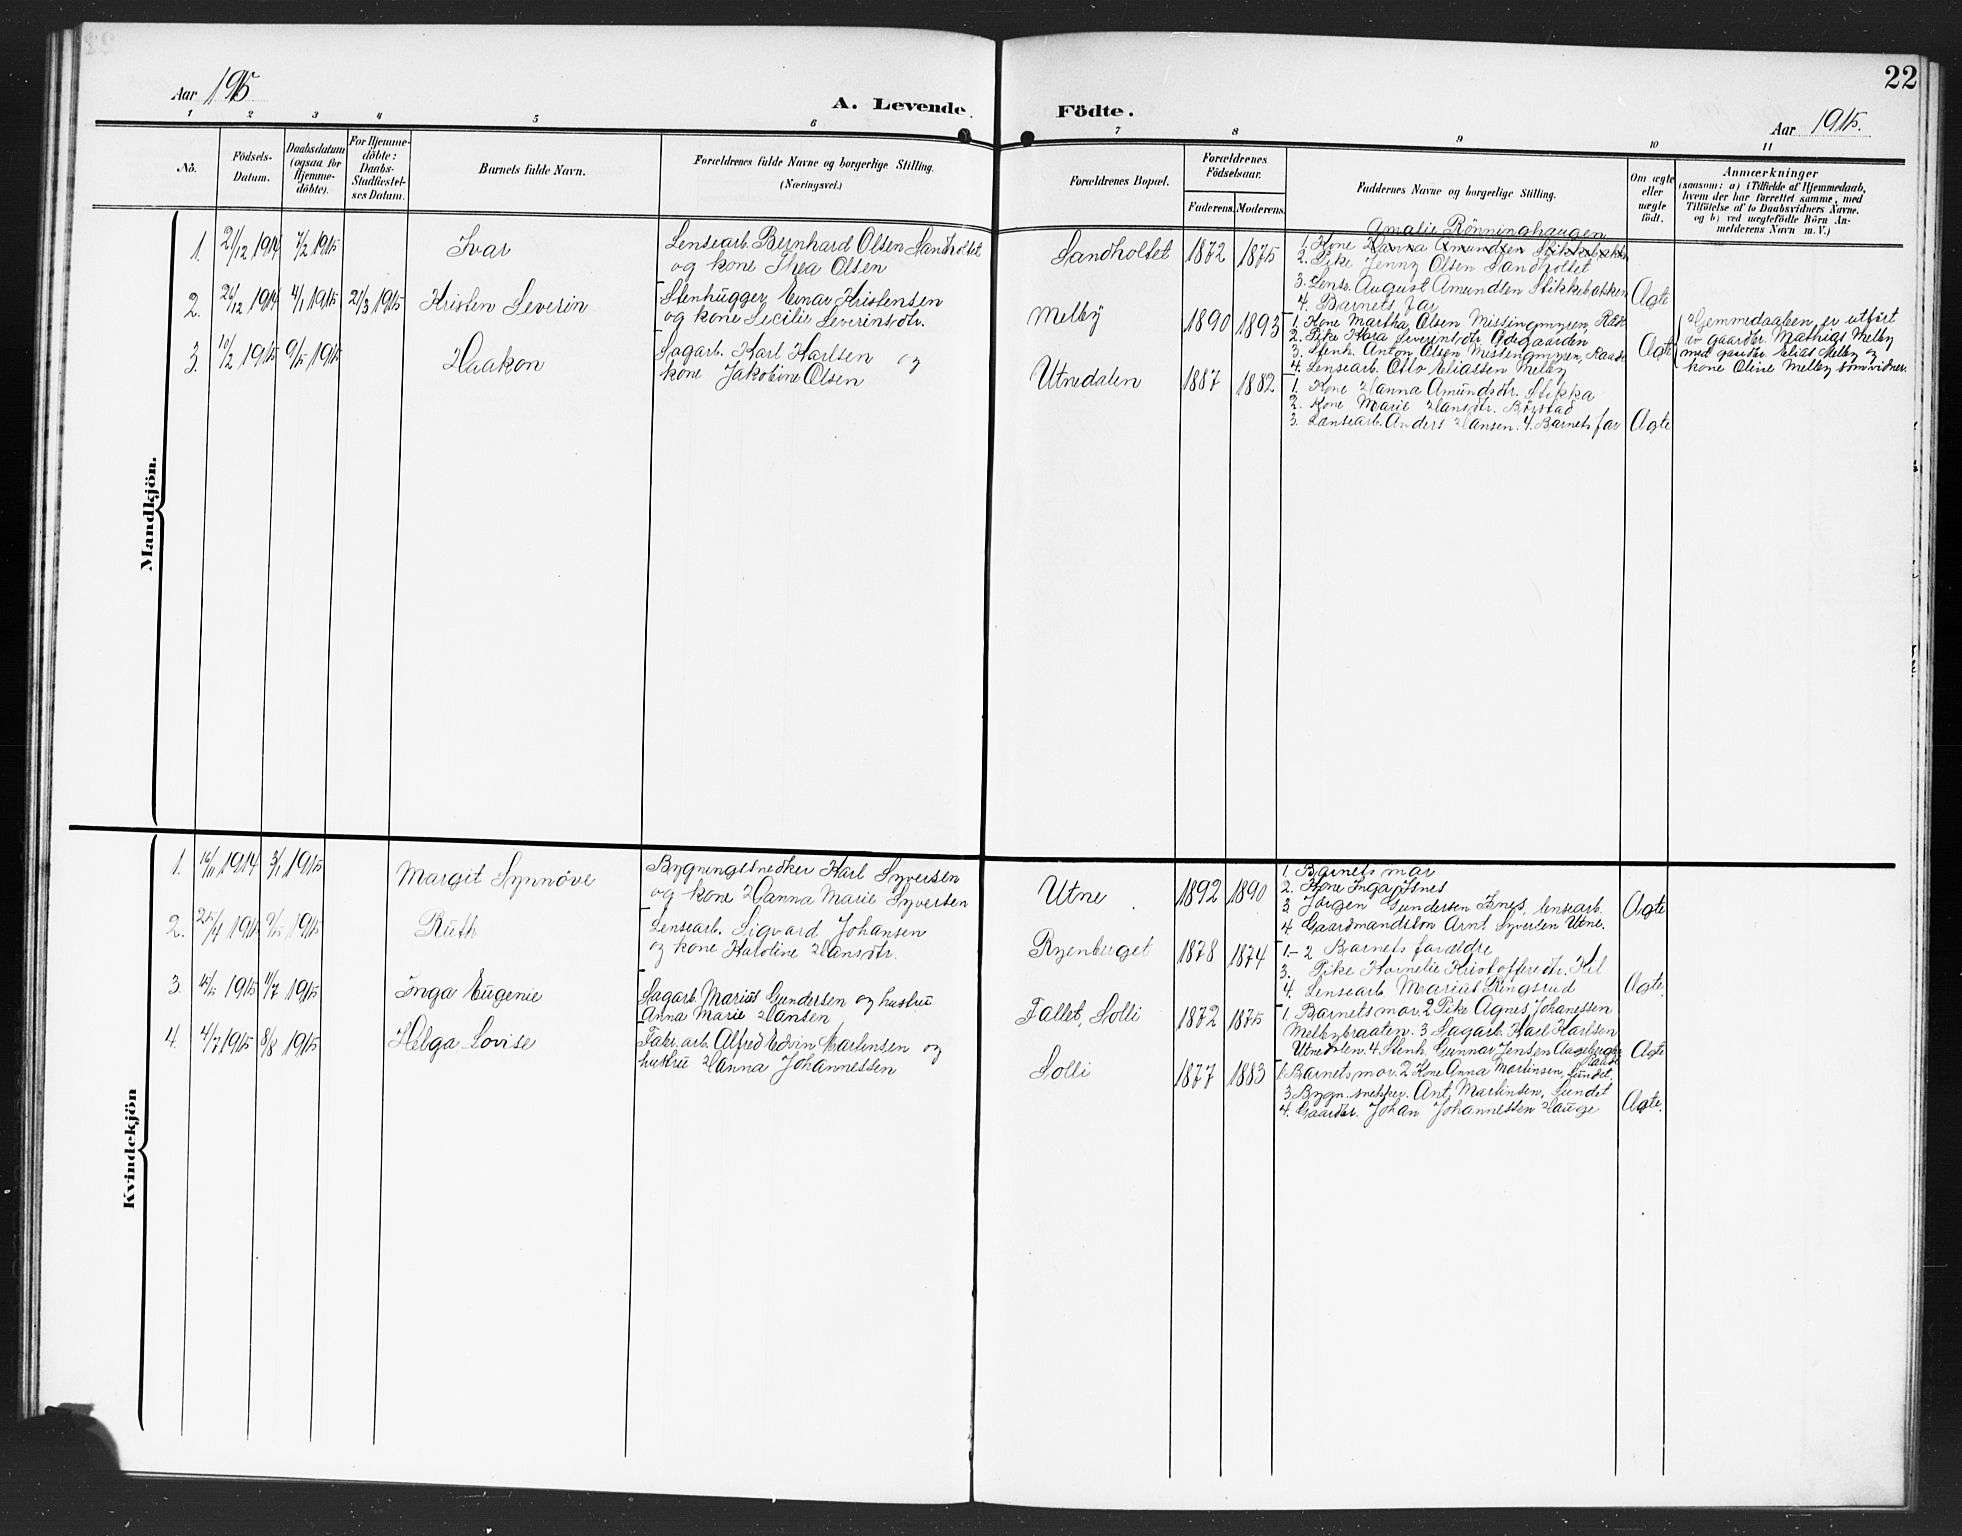 22
Aar 1915
A. Levende
Födte.
Aar 1915.
1 2 3 4 5 6 7 8 9 10 11
No.
Födsels-
Datum.
Daabsdatum
(ogsaa for
Hjemme-
döbte).
For Hjemme-
döbte:
Daabs-
Stadfæstel-
ses Datum.
Barnets fulde Navn.
Forældrenes fulde Navne og borgerlige Stilling.
(Næringsvei.)
Forældrenes Bopæl.
Forældrenes
Födselsaar.
Faderens. Moderens.
Faddernes Navne og borgerlige Stilling.
Om ægte
eller
uægte
födt.
Anmærkninger
(saasom: a) i Tilfælde af Hjemmedaab,
hvem der har forrettet samme, med
Tilföielse af to Daabsvidners Navne.
og b) ved uægtefödte Börn An-
melderens Navn m. V.)
Mandkjön.
1. 21/12 1914 7/2 1915
Ivar
Lensearb. Bernhard Olsen Sandholtet
og kone Thea Olsen
Sandholtet 1872 1875
Amalie Rönninghaugen
1. Kone Hanna Amundsen Stikkebakken
2. Pike Jenny Olsen Sandholtet
3. Lense. August Amundsen Stikkebakken
4. Barnets far
Ægte
2. 26/12 1914 4/1 1915 21/3 1915
Kristen Severin
Stenhugger Einar Kristensen
og kone Cecilie Severinsdtr.
Melby 1890 1893
1. Kone Martha Olsen Missingmyren, Raade
2. Pike Kara Severinsdtr Ödegaarden
3. Stenh. Anton Olsen Missingmyren, Raade
4. Lensearb. Otto Eliassen Melby
Ægte
Hjemmedaaben er utfört
av gaardbr. Mathias Melby
med gaardbr. Elias Melby og
kone Oline Melby som vidner.
3. 10/2 1915 9/5 1915
Haakon
Sagarb. Karl Karlsen og
kone Jakobine Olsen
Utnedalen 1887 1882
1. Kone Hanna Amundsdtr. Stikka
2. Kone Marie Hansdtr. Börstad
3. Lensearb. Anders Hansen. 4. Barnets far
Ægte
Kvindekjön
1. 16/11 1914 3/1 1915
Margit Synnöve
Bygningssnedker Karl Syversen
og kone Hanna Marie Syversen
Utne 1892 1890
1. Barnets mor
2. Kone Inga Isnes
3 Jörgen Gundersen Isnes, lensearb.
4 Gaardmandssön Arnt Syversen Utne.
Ægte
2. 25/4 1915 9/5 1915
Ruth
Lensearb. Sigvard Johansen
og kone Karoline Hansdtr.
Ryenberget 1878 1874
1.-2 Barnets forældre
3. Pike Kornelie Kristoffersdtr. Kil
4. Lensearb Marius Ringsrud
Ægte.
3. 15/5 1915 11/7 1915
Inga Eugenie
Sagarb. Marius Gundersen og hustru
Anna Marie Hansen
Fallet, Solli 1872 1875
1. Barnets mor. 2 Pike Agnes Johanessen
Melbybraaten. 3 Sagarb. Karl Karlsen
Utnedalen. 4 Stenh. Gunnar Jensen Aageberget
Raade
Ægte
4. 4/7 1915 8/8 1915
Helga Lovise
Fabr. arb. Alfred Edvin Martinsen og
hustru Hanna Johannessen
Solli 1877 1883
1. Barnets mor. 2 Kone Anna Martinsen, Sundet.
3 Bygn. snekker. Ant. Martinsen, Sundet
4. Gaardbr. Johan Johannessen Hauge
Ægte.